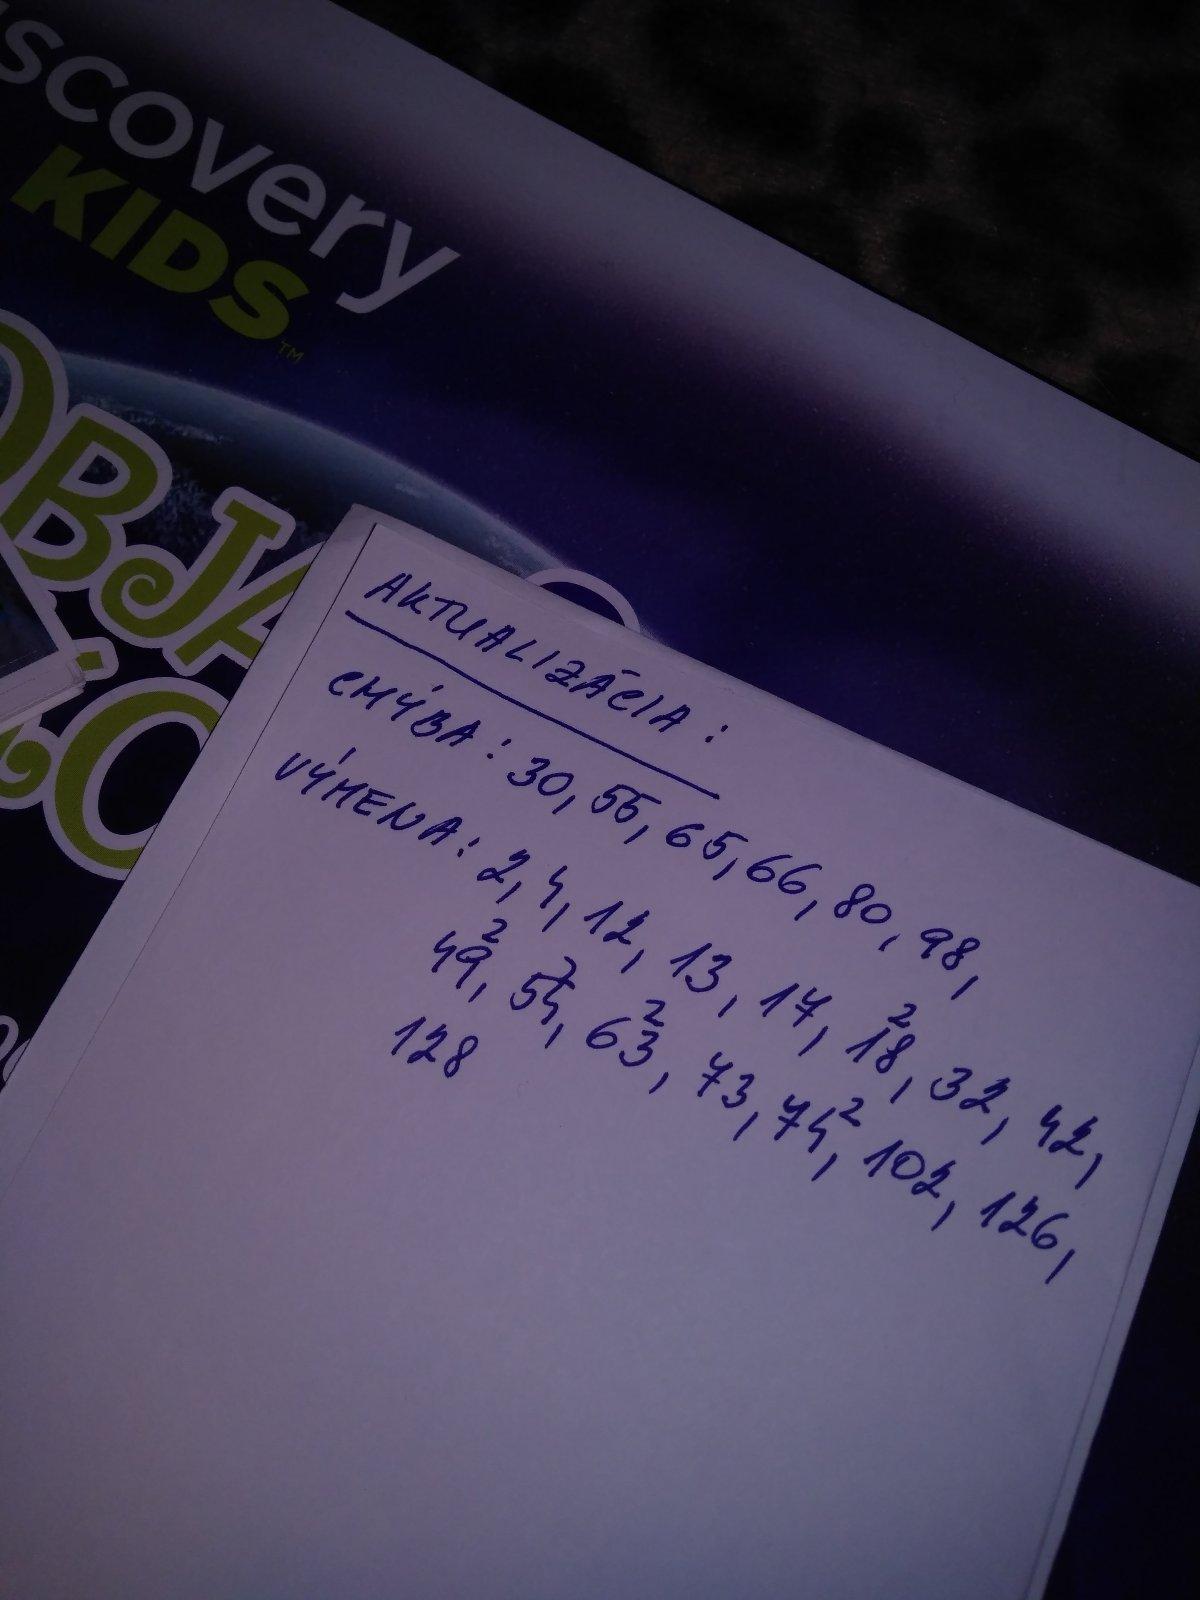 iscovery
KIDS™
OBJA
AKTUALIZÁCIA:
CHÝBA: 30, 55, 65, 66, 80, 98,
VÝMENA: 2, 4, 12, 13, 17, 18², 32, 42,
49², 54², 63², 73, 74², 102, 126,
128